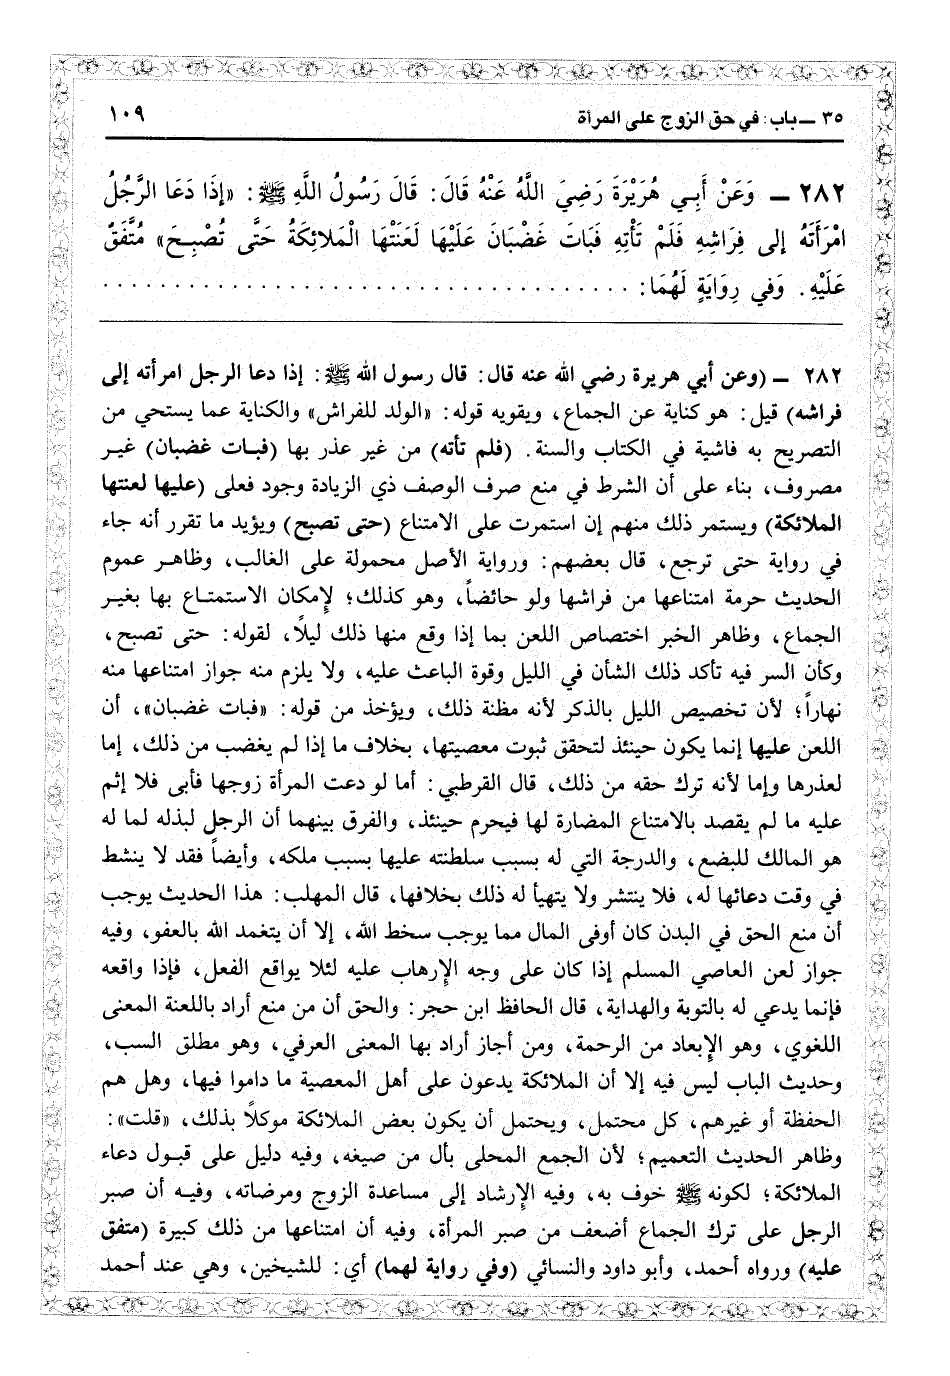 ٣٥ ــ باب: في حق الزوج على المرأة ١٠٩
٢٨٢ ــ وَعَنْ أَبِي هُرَيْرَةَ رَضِيَ اللَّهُ عَنْهُ قَالَ: قَالَ رَسُولُ اللَّهِ ﷺ: «إِذَا دَعَا الرَّجُلُ
امْرَأَتَهُ إلى فِرَاشِهِ فَلَمْ تَأْتِهِ فَبَاتَ غَضْبَانَ عَلَيْهَا لَعَنَتْهَا الْمَلائِكَةُ حَتَّى تُصْبِحَ» مُتَّفَقٌ
عَلَيْهِ. وَفي رِوَايَةٍ لَهُمَا: . . . . . . . . . . . . . . . . . . . . . . . . . . . . . . . . . . . . . .
٢٨٢ ــ (وعن أبي هريرة رضي الله عنه قال: قال رسول الله ﷺ: إذا دعا الرجل امرأته إلى
فراشه) قيل: هو كناية عن الجماع، ويقويه قوله: «الولد للفراش» والكناية عما يستحي من
التصريح به فاشية في الكتاب والسنة. (فلم تأته) من غير عذر بها (فبات غضبان) غير
مصروف، بناء على أن الشرط في منع صرف الوصف ذي الزيادة وجود فعلى (عليها لعنتها
الملائكة) ويستمر ذلك منهم إن استمرت على الامتناع (حتى تصبح) ويؤيد ما تقرر أنه جاء
في رواية حتى ترجع، قال بعضهم: ورواية الأصل محمولة على الغالب، وظاهر عموم
الحديث حرمة امتناعها من فراشها ولو حائضاً، وهو كذلك؛ لإمكان الاستمتاع بها بغير
الجماع، وظاهر الخبر اختصاص اللعن بما إذا وقع منها ذلك ليلاً، لقوله: حتى تصبح،
وكأن السر فيه تأكد ذلك الشأن في الليل وقوة الباعث عليه، ولا يلزم منه جواز امتناعها منه
نهاراً؛ لأن تخصيص الليل بالذكر لأنه مظنة ذلك، ويؤخذ من قوله: «فبات غضبان»، أن
اللعن عليها إنما يكون حينئذ لتحقق ثبوت معصيتها، بخلاف ما إذا لم يغضب من ذلك، إما
لعذرها وإما لأنه ترك حقه من ذلك، قال القرطبي: أما لو دعت المرأة زوجها فأبى فلا إثم
عليه ما لم يقصد بالامتناع المضارة لها فيحرم حينئذ، والفرق بينهما أن الرجل لبذله لما له
هو المالك للبضع، والدرجة التي له بسبب سلطنته عليها بسبب ملكه، وأيضاً فقد لا ينشط
في وقت دعائها له، فلا ينتشر ولا يتهيأ له ذلك بخلافها، قال المهلب: هذا الحديث يوجب
أن منع الحق في البدن كان أوفى المال مما يوجب سخط الله، إلا أن يتغمد الله بالعفو، وفيه
جواز لعن العاصي المسلم إذا كان على وجه الإرهاب عليه لئلا يواقع الفعل، فإذا واقعه
فإنما يدعي له بالتوبة والهداية، قال الحافظ ابن حجر: والحق أن من منع أراد باللعنة المعنى
اللغوي، وهو الإبعاد من الرحمة، ومن أجاز أراد بها المعنى العرفي، وهو مطلق السب،
وحديث الباب ليس فيه إلا أن الملائكة يدعون على أهل المعصية ما داموا فيها، وهل هم
الحفظة أو غيرهم، كل محتمل، ويحتمل أن يكون بعض الملائكة موكلاً بذلك، «قلت»:
وظاهر الحديث التعميم؛ لأن الجمع المحلى بأل من صيغه، وفيه دليل على قبول دعاء
الملائكة؛ لكونه ﷺ خوف به، وفيه الإرشاد إلى مساعدة الزوج ومرضاته، وفيه أن صبر
الرجل على ترك الجماع أضعف من صبر المرأة، وفيه أن امتناعها من ذلك كبيرة (متفق
عليه) ورواه أحمد، وأبو داود والنسائي (وفي رواية لهما) أي: للشيخين، وهي عند أحمد